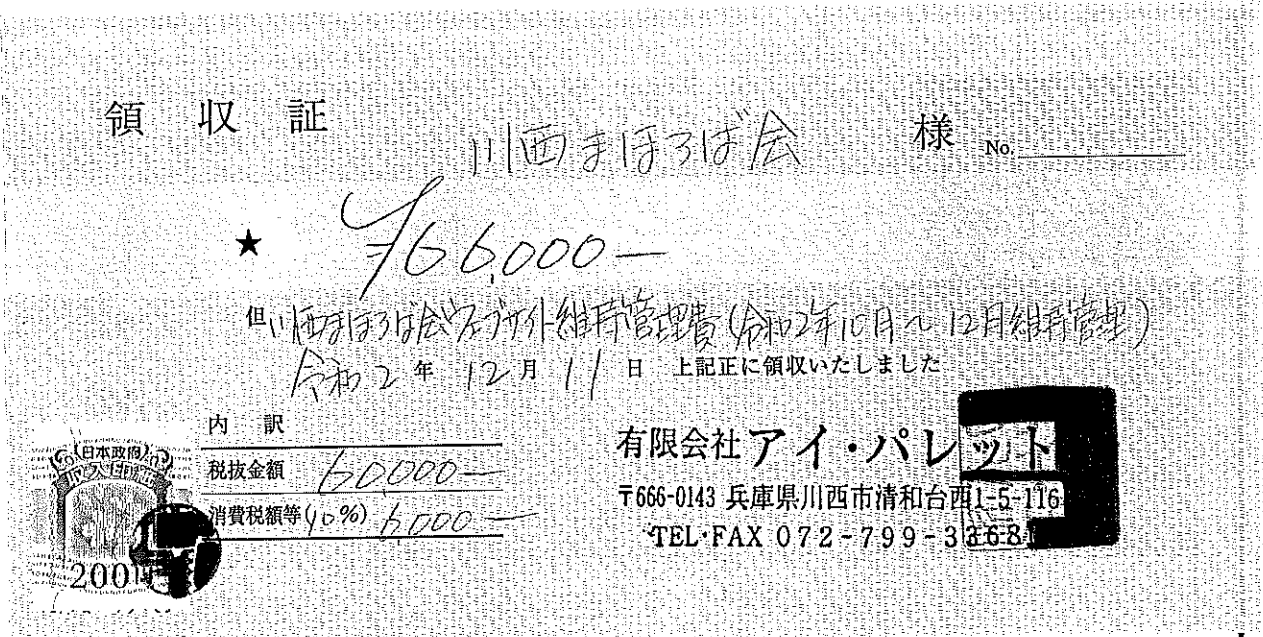 領収証 川西まほろば会 様 No.
★ ¥66,000—
但 川西まほろば会ウェブサイト維持管理費(令和2年10月〜12月維持管理)
令和2年12月11日 上記正に領収いたしました
内訳
税抜金額 60,000—
消費税額等(10%) 6,000—
有限会社アイ・パレット
〒666-0143 兵庫県川西市清和台西1-5-116
TEL・FAX 072-799-3368
日本政府
収入印紙
200円